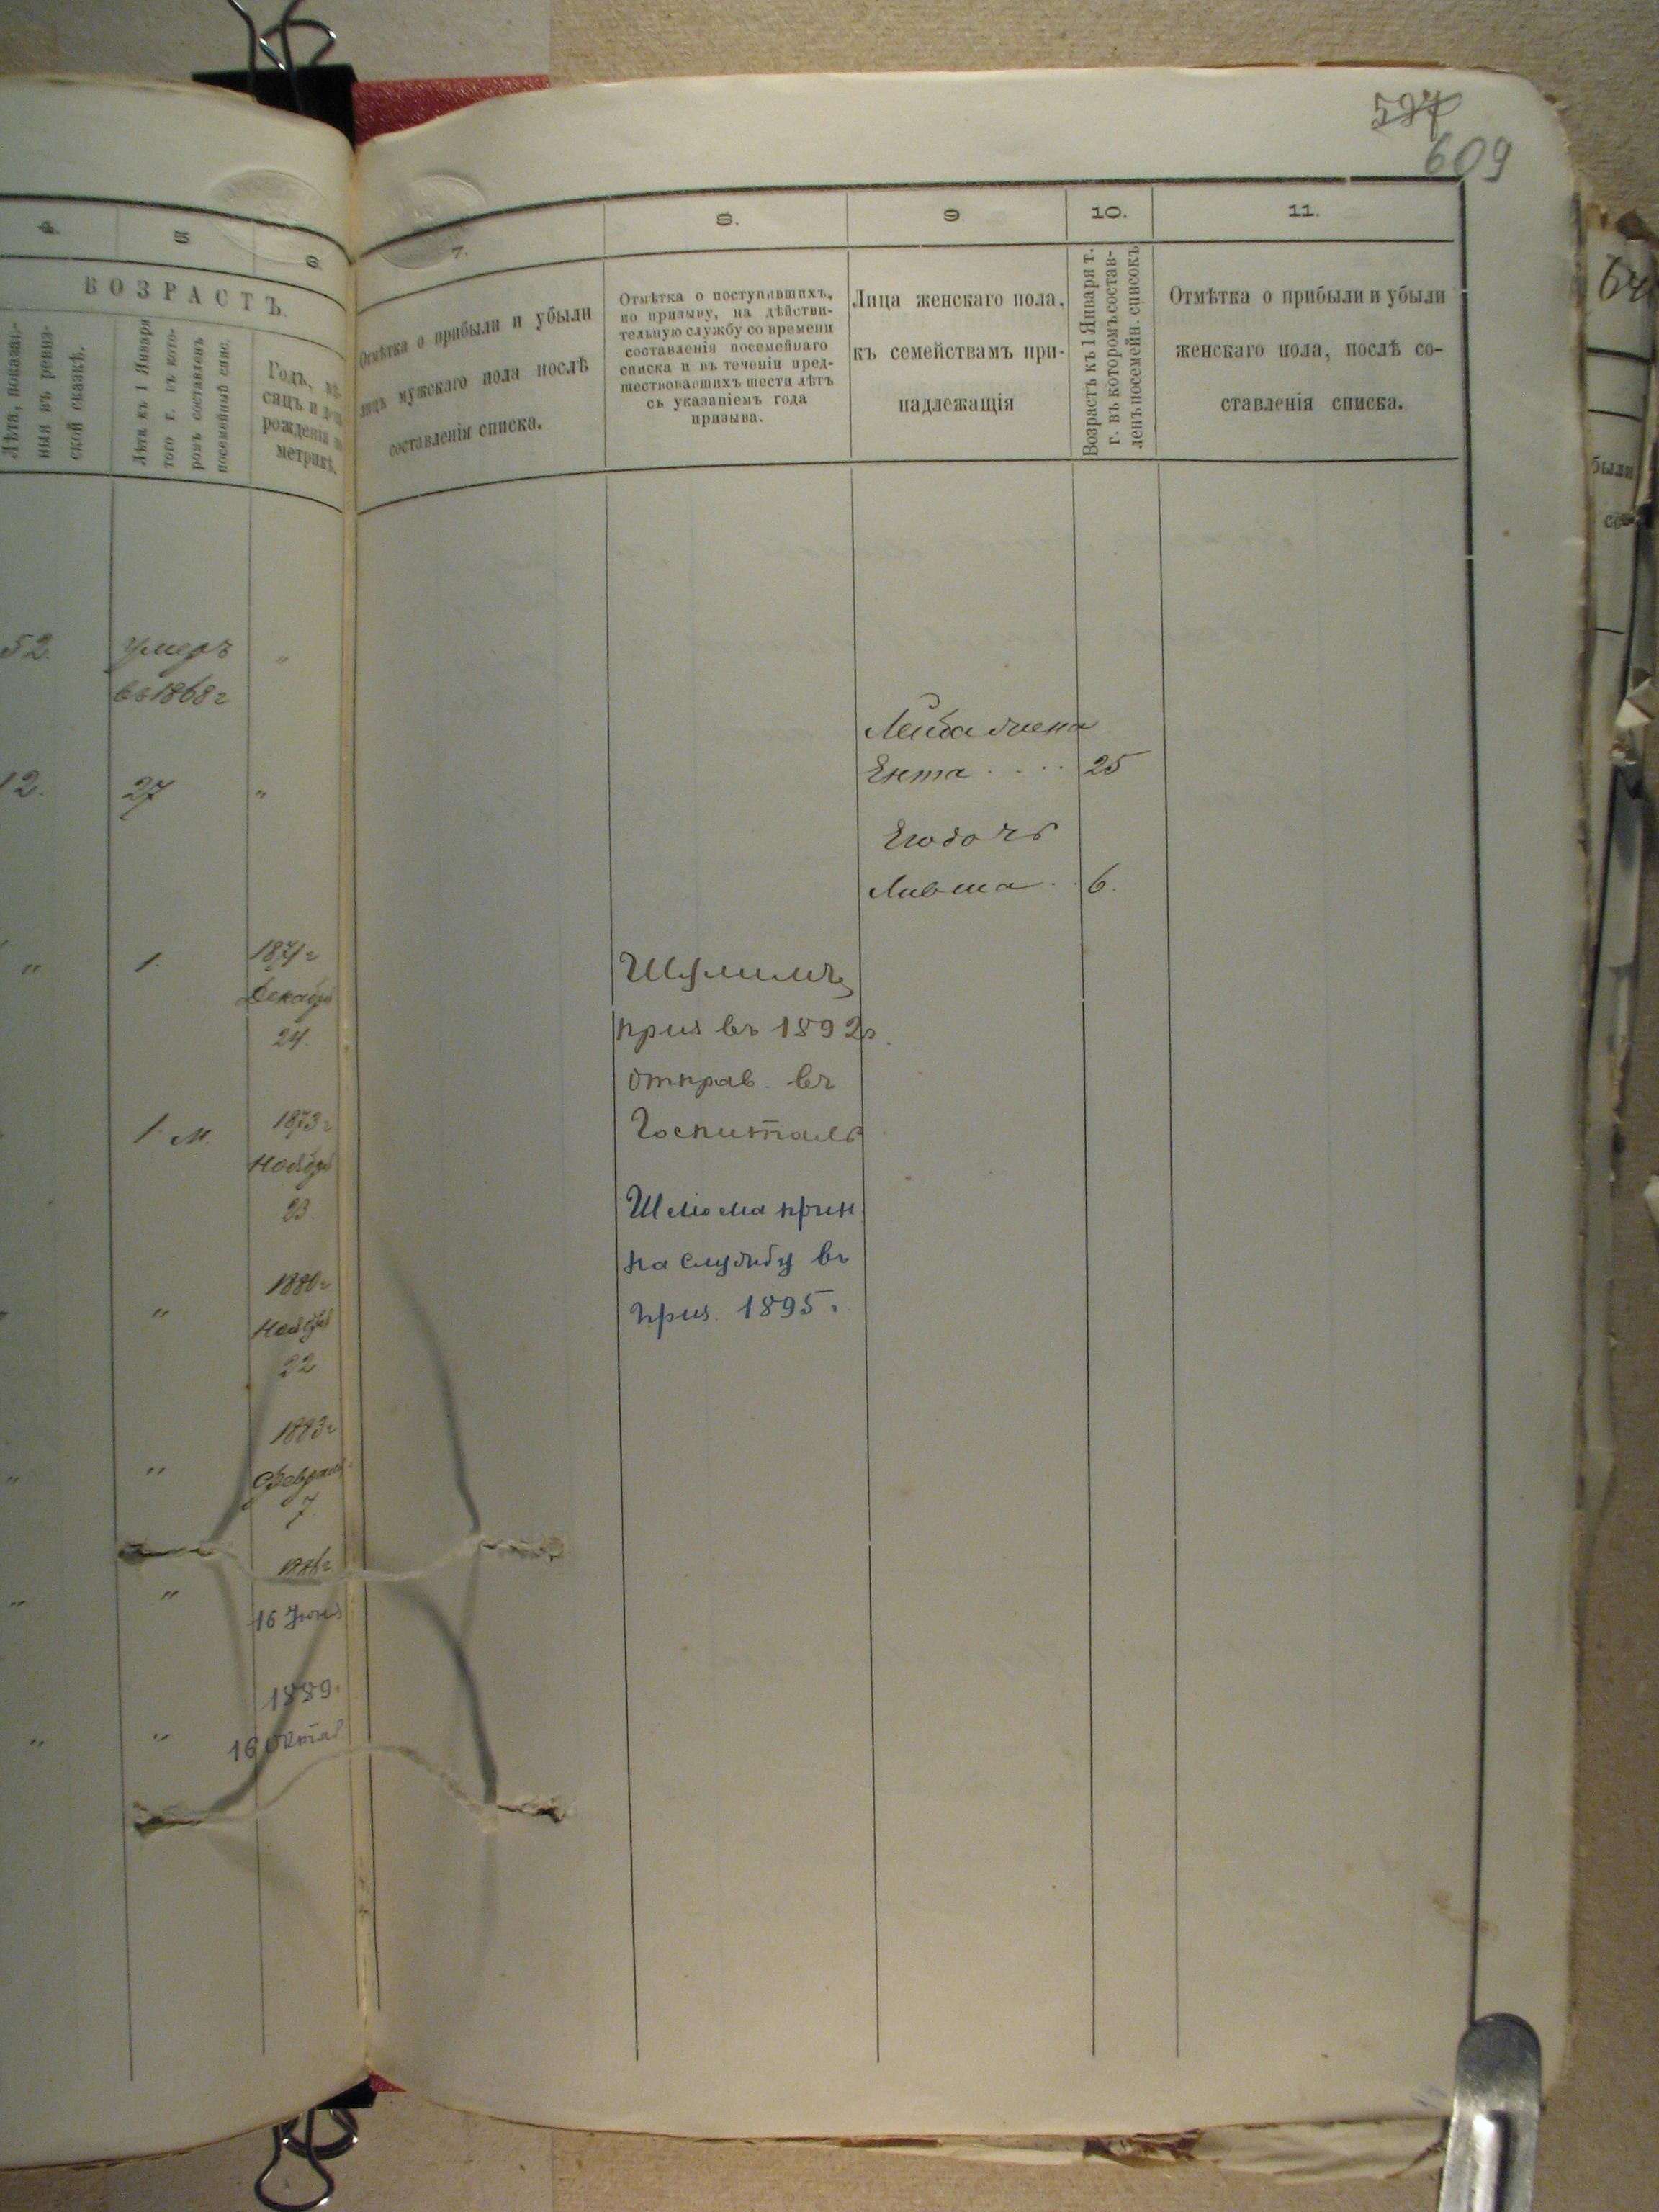 527
609
4.
5
6.
ВОЗРАСТЪ.
Лѣта, показан-
ныя въ ревиз-
ской сказкѣ.
Лѣта къ 1 Января
того г. въ кото-
ромъ составленъ
посемейный спис.
Годъ, мѣ-
сяцъ и день
рожденія по
метрикѣ.
52.
умеръ
въ 1868 г
"
12.
27
"
"
1.
1871 г
Декабря
24.
1 м.
1873 г
Ноября
23.
"
1880 г
Ноября
22
"
"
1883 г
Февраля
7.
"
"
1886 г
16 Июня
"
"
1889.
16 Октяб
7.
8.
9
10.
11.
Отмѣтка о прибыли и убыли
лицъ мужскаго пола послѣ
составленія списка.
Отмѣтка о поступившихъ,
по призыву, на дѣйстви-
тельную службу со времени
составленія посемейнаго
списка и въ теченіи пред-
шествовавшихъ шести лѣтъ
съ указаніемъ года
призыва.
Лица женскаго пола,
къ семействамъ при-
надлежащія
Возрастъ къ 1 Января т.
г. въ которомъ состав-
ленъ посемейн. списокъ
Отмѣтка о прибыли и убыли
женскаго пола, послѣ со-
ставленія списка.
Лейба жена
Ента . . . . 25
Его дочь
Ливша . . 6.
Шулимъ
приз въ 1892 г.
отправ. въ
Госпиталь
Шлиома прин
на службу въ
приз. 1895 г.
были